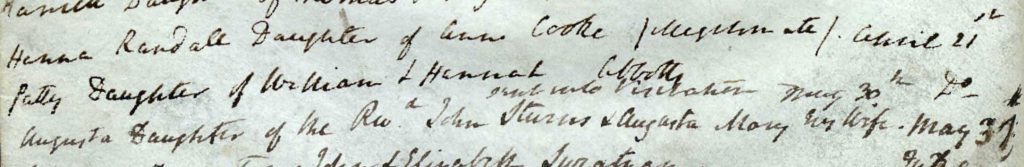 Daughter of Thomas
Hanna Randall Daughter of Ann Cooke (Illegitimate) April 21st
Patty Daughter of William & Hannah Abbott May 30th Do
sent into Visitation
Augusta Daughter of the Revd John Sturges & Augusta Mary his Wife May 31
John & Elizabeth